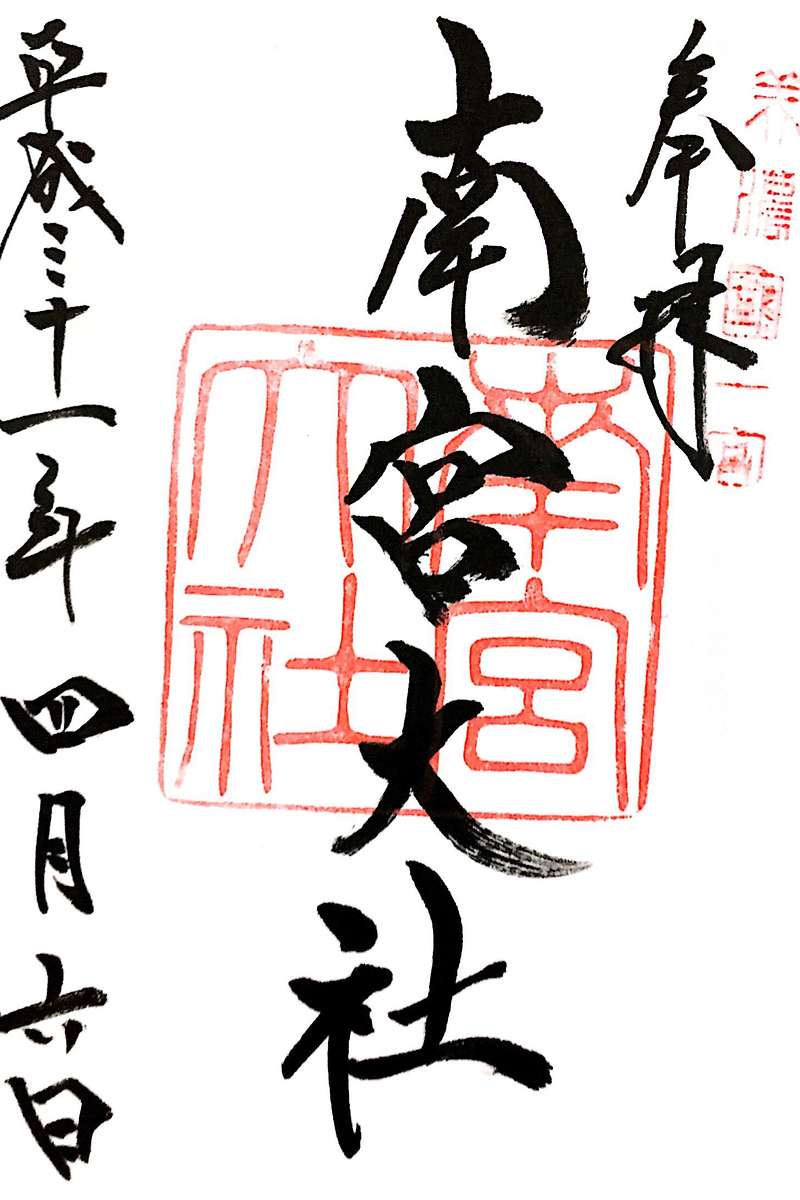 美濃國一宮
奉拝
南宮大社
南宮大社
平成三十一年四月六日